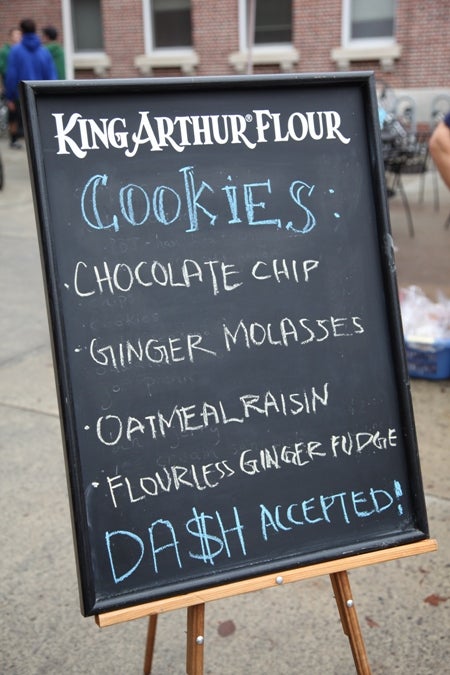 KING ARTHUR® FLOUR
COOKIES:
• CHOCOLATE CHIP
• GINGER MOLASSES
• OATMEAL RAISIN
• FLOURLESS GINGER FUDGE
DA$H ACCEPTED!